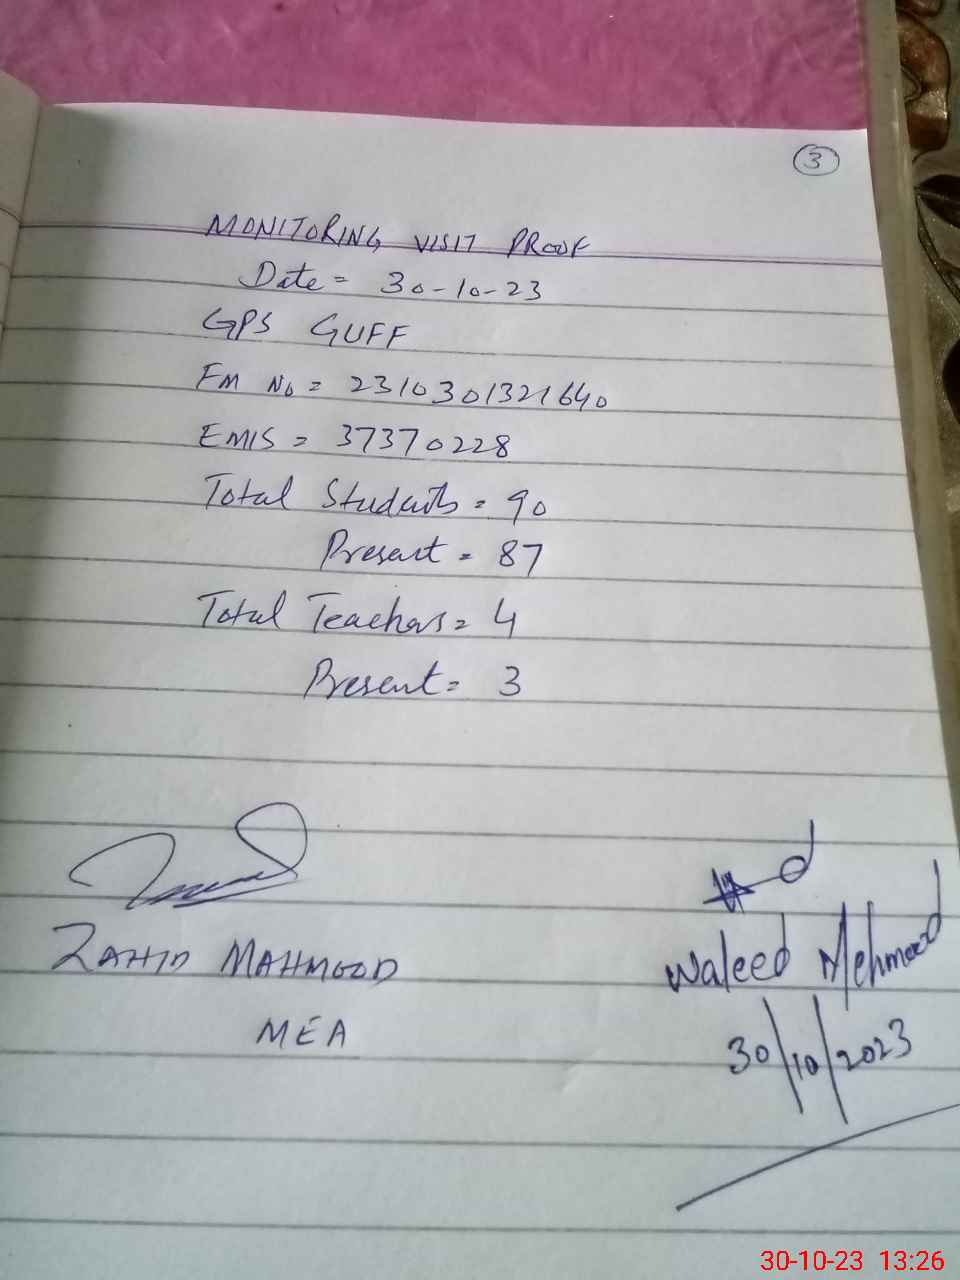 3
MONITORING VISIT PROOF
Date = 30-10-23
GPS GUFF
FM No = 2310301321640
EMIS = 37370228
Total Students = 90
Present = 87
Total Teachers = 4
Present = 3
ZAHID MAHMOOD
MEA
Waleed Mehmood
30/10/2023
30-10-23 13:26